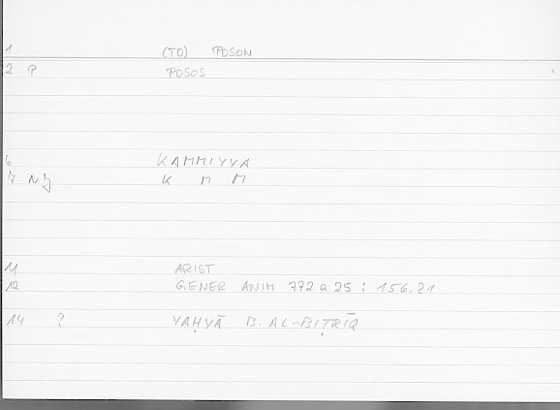 1 (TO) POSON
2 P POSOS
6 KAMMIYYA
7 NJ K M M
11 ARIST
12 GENER ANIM 772 a 25 : 156.21
14 ? YAḤYĀ B. AL-BIṬRĪQ